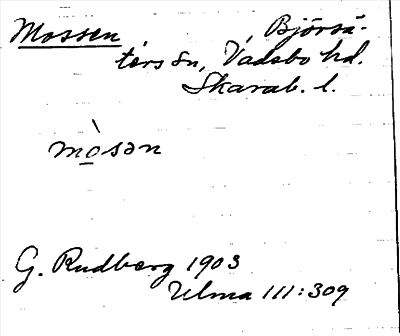 Mossen Björsä-
ters sn, Vadsbo hd.
Skarab. l.
mò̲sən
G. Rudberg 1903
Ulma 111:309